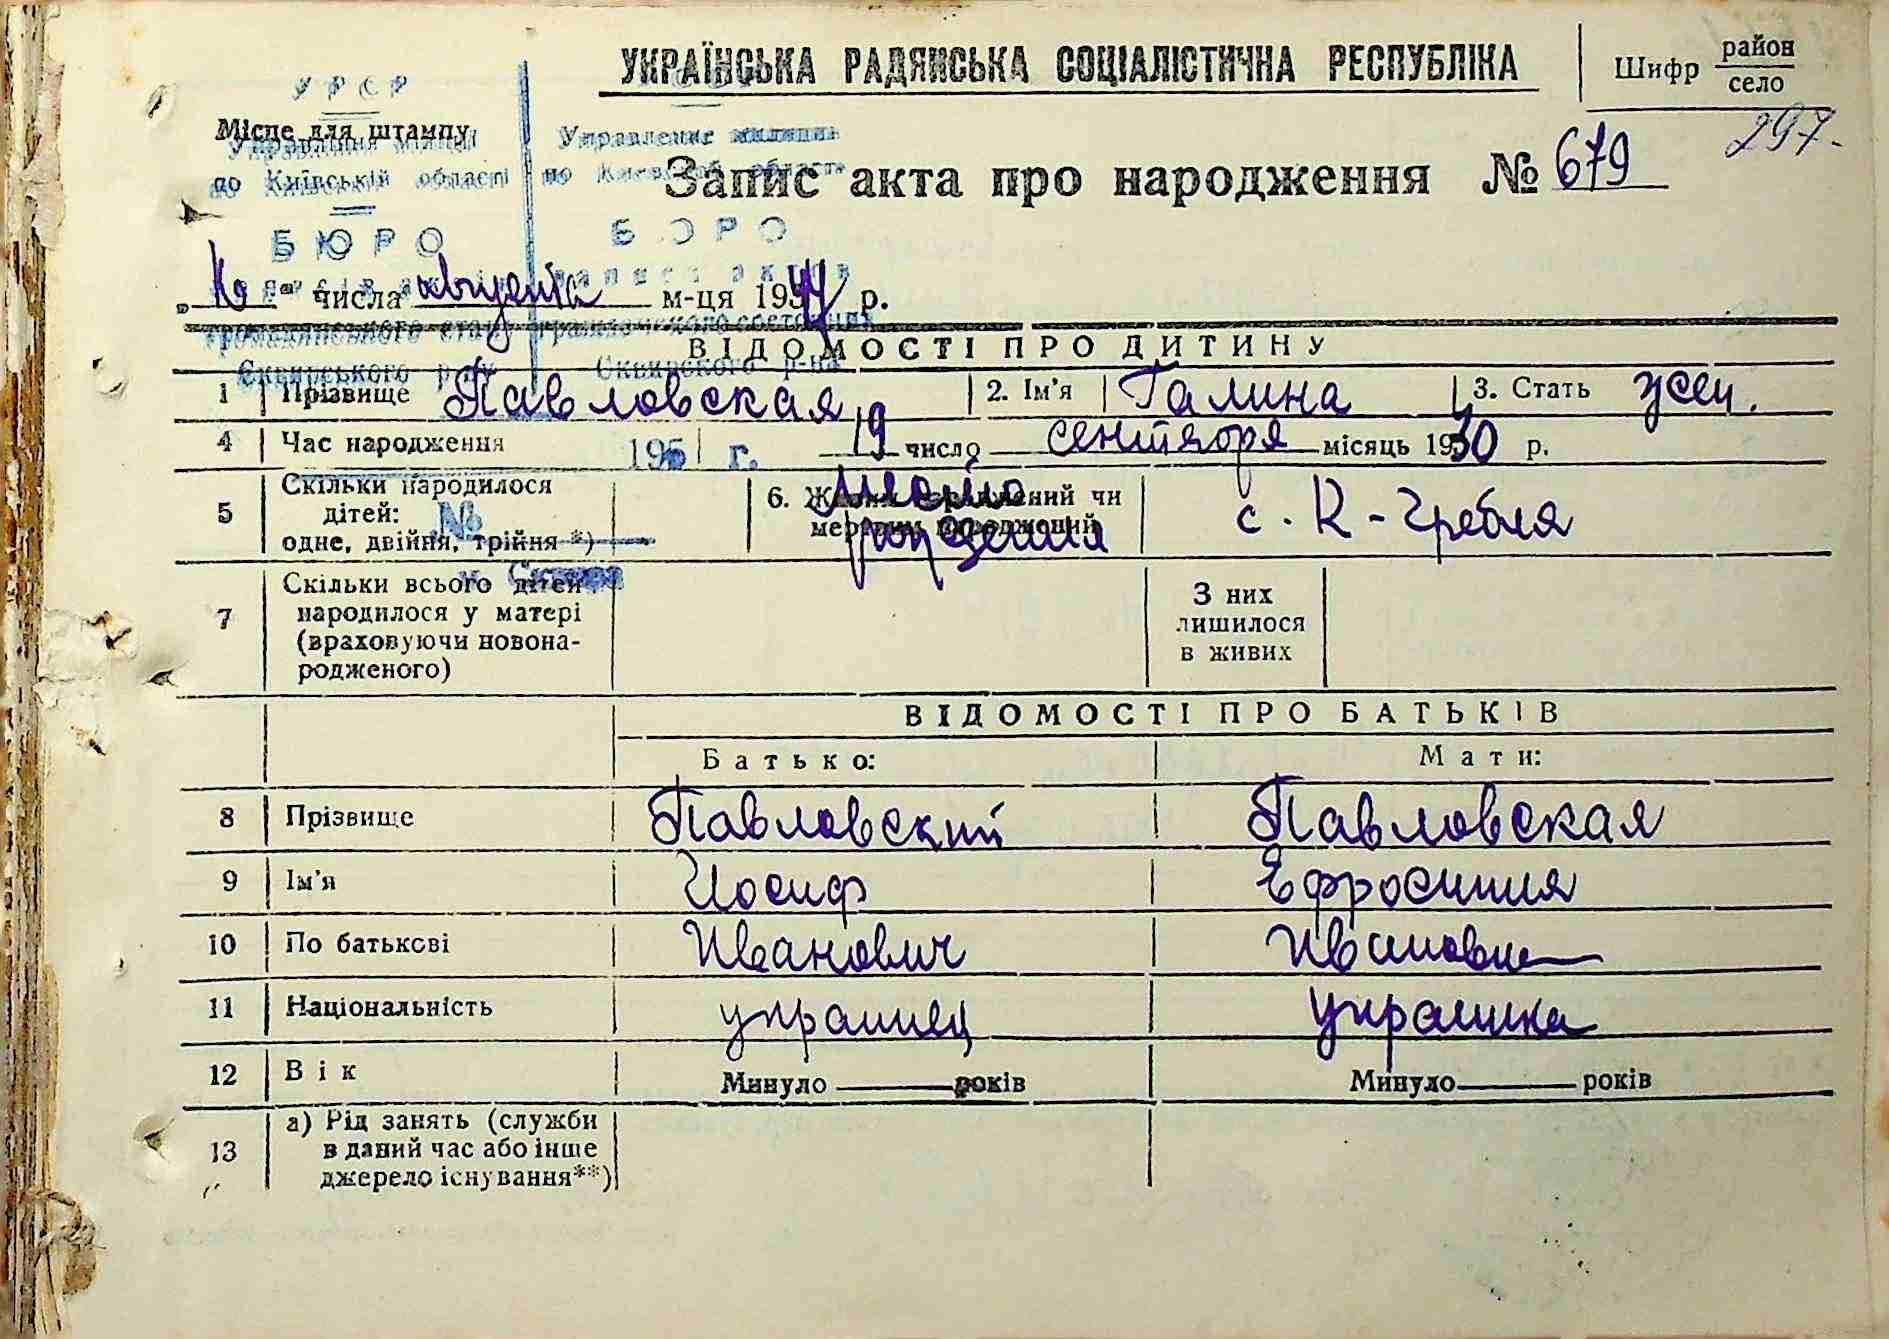 УКРАЇНСЬКА РАДЯНСЬКА СОЦІАЛІСТИЧНА РЕСПУБЛІКА
Шифр район
село
297.
УРСР
Місце для штампу
Управління міліції
Управление милиции
по Київській області
по Киевской области
Запис акта про народження № 679
БЮРО
БЮРО
числа августа м-ця 195 р.
громадянського стану
гражданского состояния
Сквирського р-ну
Сквирского р-на
ВІДОМОСТІ ПРО ДИТИНУ
1 Прізвище Павловская 2. Ім'я Галина 3. Стать жен.
4 Час народження 195 г. 19 число сентября місяць 1930 р.
5 Скільки народилося дітей: одне, двійня, трійня *)
№
6. Живим народжений чи мертвим народжений
место рождения
с. К-Гребля
7 Скільки всього дітей народилося у матері (враховуючи новонародженого)
З них лишилося в живих
ВІДОМОСТІ ПРО БАТЬКІВ
Батько: Мати:
8 Прізвище Павловский Павловская
9 Ім'я Иосиф Ефросиния
10 По батькові Иванович Ивановна
11 Національність украинец украинка
12 Вік Минуло років Минуло років
13 а) Рід занять (служби
в даний час або інше
джерело існування**)